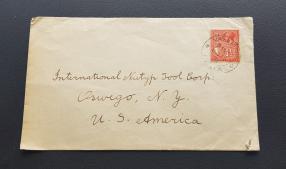 International Nutyp Tool Corp.
Oswego, N. Y.
U. S. America